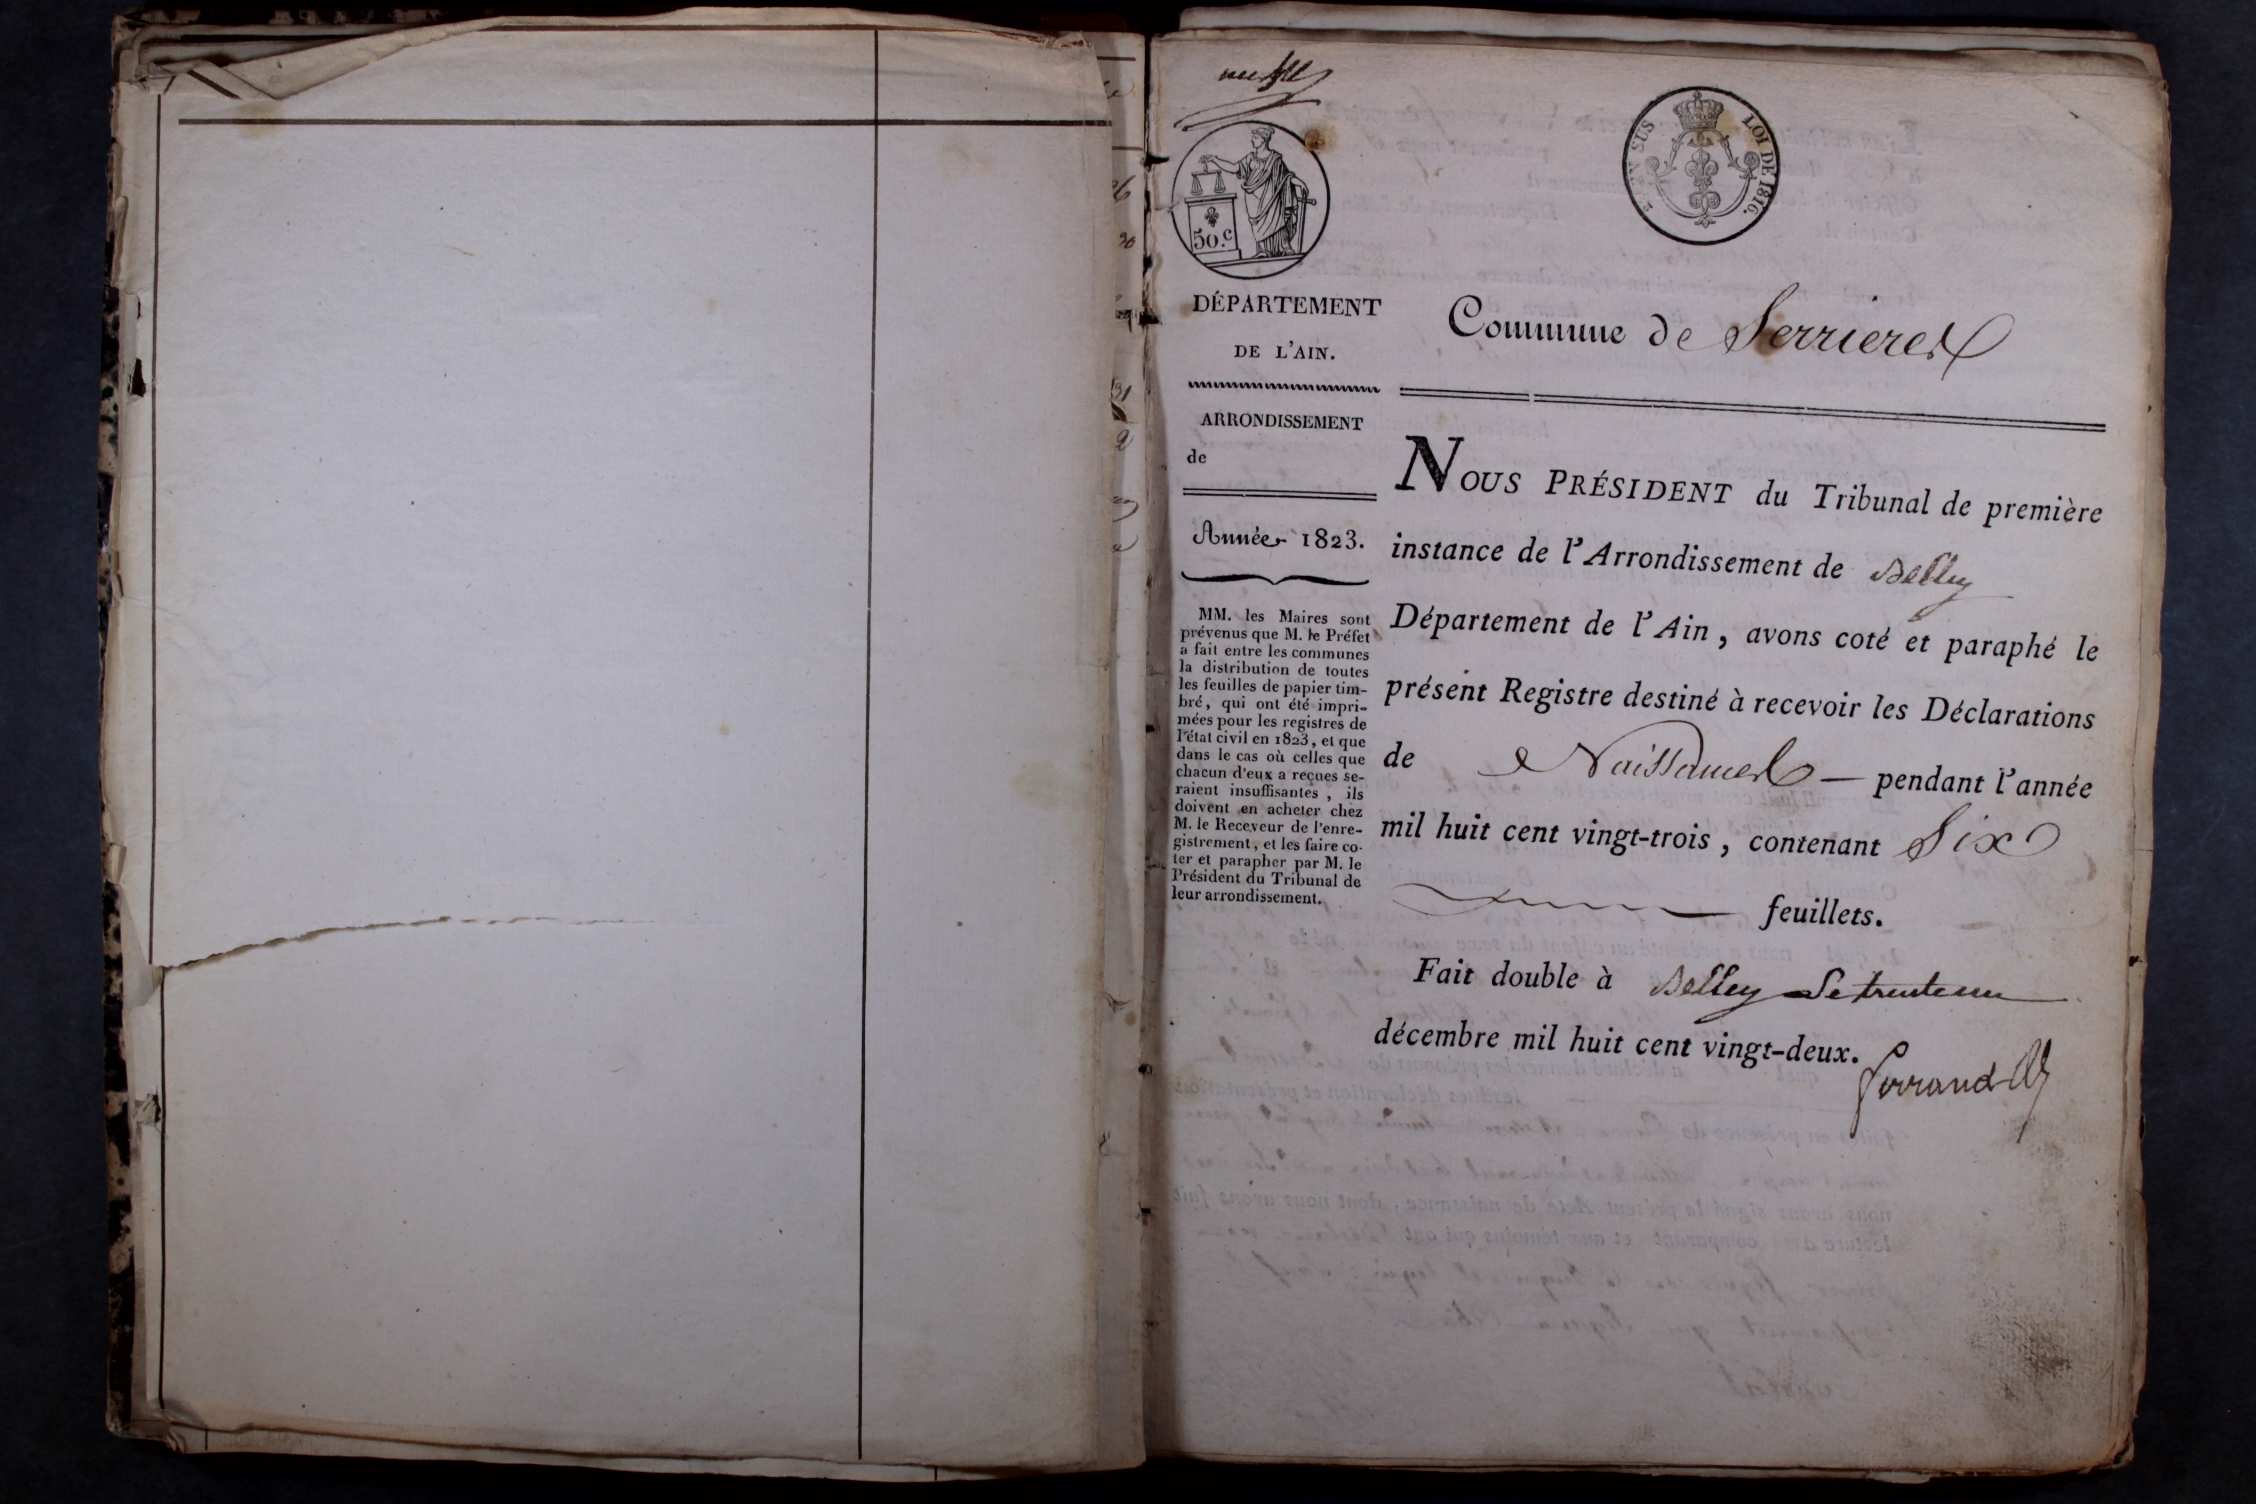 50.c
EN SUS
LOI DE 1816.
DÉPARTEMENT
DE L'AIN.
ARRONDISSEMENT
de
Année 1823.
MM. les Maires sont
prévenus que M. le Préfet
a fait entre les communes
la distribution de toutes
les feuilles de papier tim-
bré, qui ont été impri-
mées pour les registres de
l'état civil en 1823, et que
dans le cas où celles que
chacun d'eux a reçues se-
raient insuffisantes, ils
doivent en acheter chez
M. le Receveur de l'enre-
gistrement, et les faire co-
ter et parapher par M. le
Président du Tribunal de
leur arrondissement.
Commune de Serrieres
NOUS PRÉSIDENT du Tribunal de première
instance de l'Arrondissement de Belley
Département de l'Ain, avons coté et paraphé le
présent Registre destiné à recevoir les Déclarations
de Naissances — pendant l'année
mil huit cent vingt-trois, contenant Six
feuillets.
Fait double à Belley le trente un
décembre mil huit cent vingt-deux.